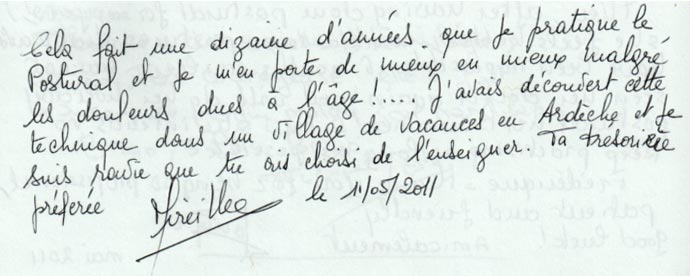 Cela fait une dizaine d'années que je pratique le
Postural et je m'en porte de mieux en mieux malgré
les douleurs dues à l'âge !.... J'avais découvert cette
technique dans un village de vacances en Ardèche et je
suis ravie que tu ais choisi de l'enseigner. Ta trésorière
préférée Mireille le 11/05/2011